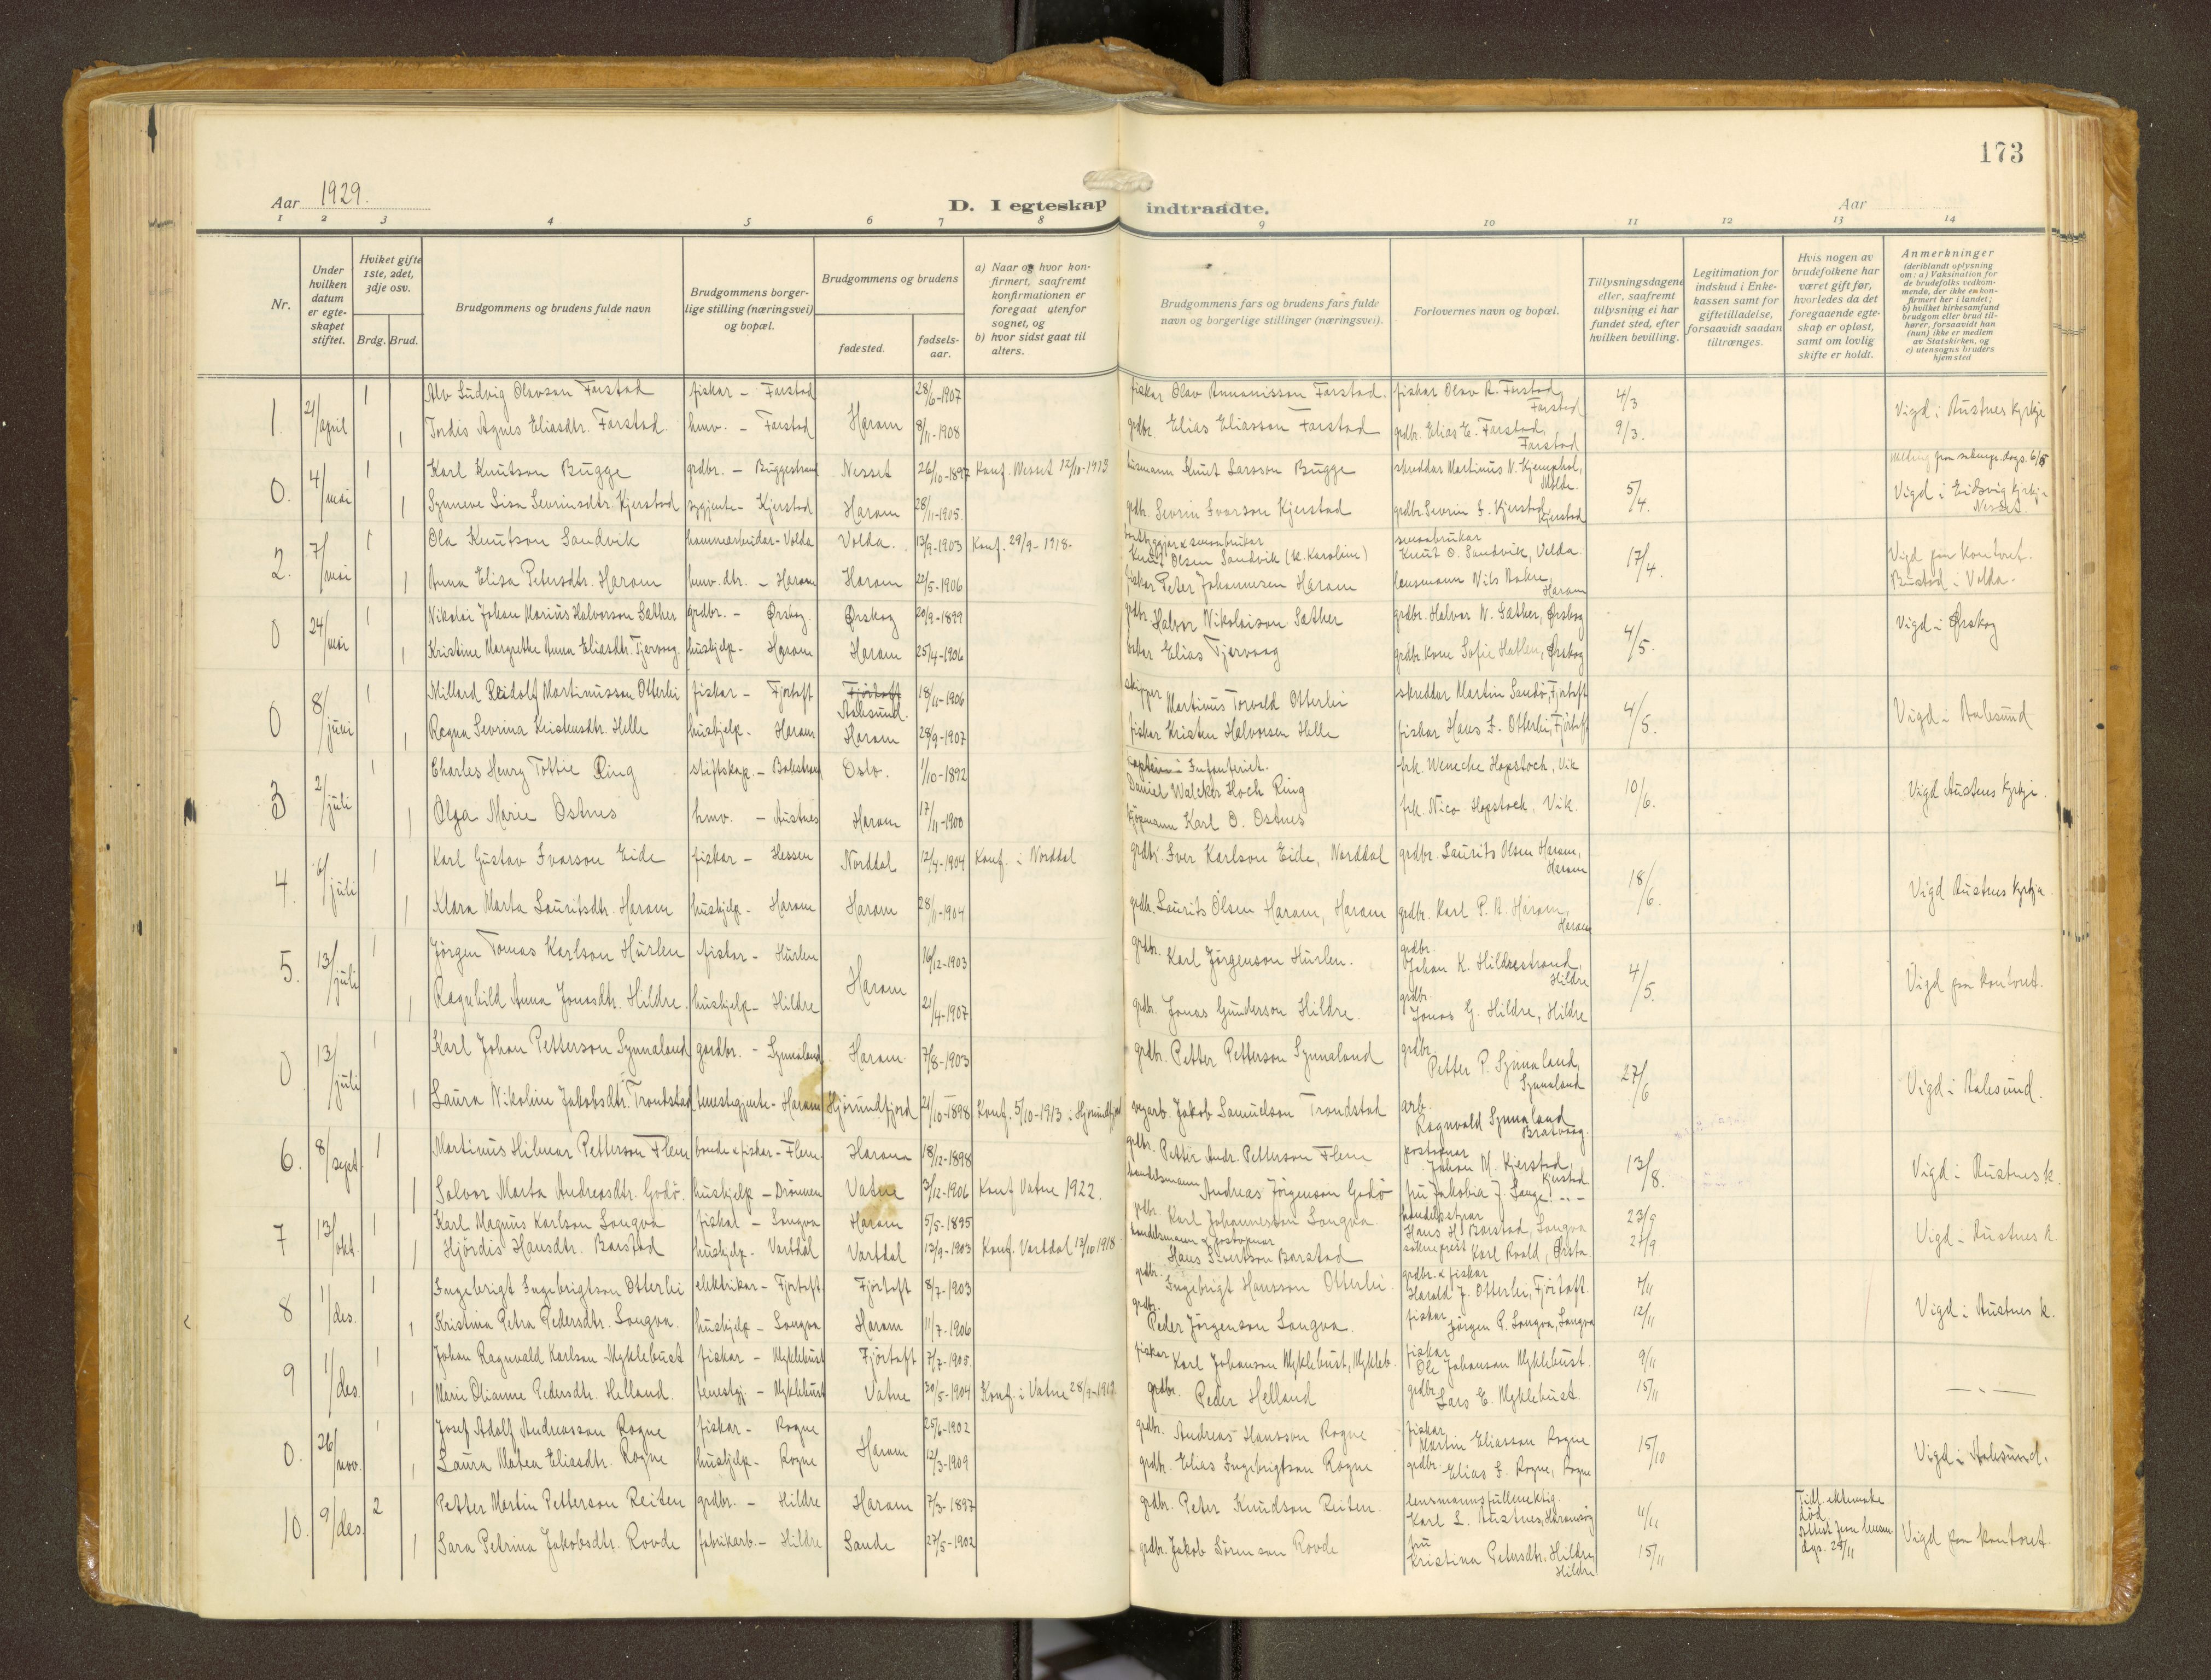 173
Aar 1929.
D. I egteskap indtraadte.
Aar
1 2 3 4 5 6 7 8 9 10 11 12 13 14
Nr.
Under hvilken datum er egteskapet stiftet.
Hviket gifte 1ste, 2det, 3dje osv.
Brdg. Brud.
Brudgommens og brudens fulde navn
Brudgommens borgerlige stilling (næringsvei) og bopæl.
Brudgommens og brudens
fødested.
fødselsaar.
a) Naar og hvor konfirmert, saafremt konfirmationen er foregaat utenfor sognet, og
b) hvor sidst gaat til alters.
Brudgommens fars og brudens fars fulde navn og borgerlige stillinger (næringsvei).
Forlovernes navn og bopæl.
Tillysningsdagene eller, saafremt tillysning ei har fundet sted, efter hvilken bevilling.
Legitimation for indskud i Enkekassen samt for giftetilladelse, forsaavidt saadan tiltrænges.
Hvis nogen av brudefolkene har været gift før, hvorledes da det foregaaende egteskap er opløst, samt om lovlig skifte er holdt.
Anmerkninger (deriblandt oplysning om: a) Vaksination for de brudefolks vedkommende, der ikke en konfirmert her i landet; b) hvilket kirkesamfund brudgom eller brud tilhører, forsaavidt han (hun) ikke er medlem av Statskirken, og c) utensogns bruders hjemsted
1. 21/april 1 Alv Ludvig Olavson Farstad fiskar - Farstad Haram 28/6-1907 fiskar Olav Ananiasson Farstad. fiskar Olav A. Farstad, Farstad 4/3 Vigd i Austnes Kyrkje
1 Tordis Agnes Eliasdtr. Farstad. hmv. - Farstad 8/11-1908 grdbr. Elias Eliasson Farstad grdbr. Elias E. Farstad, Farstad 9/3.
0. 4/mai 1 Karl Knutson Bugge grdbr. - Buggestrand Nesset 26/10-1897 Konf. Nesset 12/10-1913 husmann Knut Larsson Bugge skreddar Martinus N. Kjemphol, Molde. 5/4. Vigd i Eidsvig Kyrkje Nesset.
1 Synneve Lisa Sevrinsdtr. Kjerstad sygjente - Kjerstad Haram 28/11-1905. grdbr. Sevrin Ivarson Kjerstad grdbr. Sevrin I. Kjerstad, Kjerstad
2. 7/mai 1 Ola Knutson Sandvik hammerarbeidar - Volda Volda. 13/9-1903 Konf. 29/9-1918. Knut Olsen Sandvik (k. Karoline) Knut O. Sandvik, Volda. 17/4. Vigd paa Kontoret. Bustad i Volda.
1 Anna Elisa Petersdtr. Haram hmv. dtr. - Haram Haram 22/5-1906 fiskar Peter Johannesen Haram lensmann Nils Bakra, Haram
0 24/mai 1 Nikolai Johan Marius Halvorson Sæther grdbr. - Ørskog. Ørskog 20/9-1899 grdbr. Halvor Nikolaison Sæther grdbr. Halvor N. Sæther, Ørskog 4/5. Vigd i Ørskog
1 Kristine Margrethe Anna Eliasdtr. Tjervaag. hushjelp - Haram Haram 25/4-1906 Elias Tjervaag grdbr. kone Sofie Hatlen, Ørskog
0 8/juni 1 Millard Reidolf Martinusson Otterlei fiskar - Fjortoft Fjørtoft Aalesund. 18/11-1906 skipper Martinus Torvald Otterlei skreddar Martin Sandø, Fjørtoft 4/5. Vigd i Aalesund
1 Ragna Sevrina Kristensdtr. Helle hushjelp. - Haram Haram 28/9-1907 fiskar Kristen Halvorsen Helle fiskar Hans I. Otterlei, Fjørtoft
3 2/juli 1 Charles Henry Tottie Ring stiftskap. - Bakstrand Oslo. 1/10-1892 kaptein i Infanteriet. Daniel Walcker Hoch Ring frk. Wenecke Hopstock, Vik 10/6. Vigd Austnes Kyrkje.
1 Olga Marie Ostnes hmv. - Austnes Haram 17/11-1900 kjøpmann Karl O. Ostnes frk. Nico Hopstock, Vik.
4. 6/juli 1 Karl Gustav Ivarson Eide fiskar - Hessen Norddal 12/4-1904 Konf. i Norddal grdbr. Iver Karlson Eide, Norddal grdbr. Laurits Olsen Haram, Haram 18/6. Vigd Austnes Kyrkja.
1 Klara Marta Lauritsdtr. Haram hushjelp - Haram Haram 28/1-1904 grdbr. Laurits Olsen Haram, Haram grdbr. Karl P. A. Haram, Haram
5. 13/juli 1 Jørgen Tomas Karlson Hurlen fiskar - Hurlen Haram 16/12-1903 grdbr. Karl Jørgenson Hurlen. grdbr. Johan K. Hildrestrand, Hildre 4/5. Vigd paa Kontoret.
1 Ragnhild Anna Jonasdtr. Hildre. hushjelp - Hildre 21/4-1907 grdbr. Jonas Gunderson Hildre. grdbr. Jonas G. Hildre, Hildre
0 13/juli 1 Karl Johan Petterson Synnaland gardbr. - Synnaland Haram 7/8-1903 grdbr. Petter Petterson Synnaland grdbr. Petter P. Synnaland, Synnaland 27/6 Vigd i Aalesund.
1 Laura Nikoline Jakobsdtr. Trondstad tenestegjente - Haram Hjørundfjord 21/10-1898 Konf. 5/10-1913 i Hjørundfjord vegarb. Jakob Samuelson Trondstad arb. Ragnvald Synnaland Bratvaag.
6. 8/sept. 1 Martinus Hilmar Petterson Flem bonde & fiskar - Flem. Haram 18/12-1898 grdbr. Petter Andr. Petterson Flem postopnar Johan M. Kjerstad, Kjerstad 13/8. Vigd i Austnes k.
1 Solvor Marta Andreasdtr. Godø. hushjelp - Drønnen Vatne 3/12-1906 Konf Vatne 1922. handelsmann Andreas Jørgenson Godø fru Jakobia J. Lauge! -"-
7 13/okt. 1 Karl Magnus Karlson Longva fiskar - Longva Haram 5/5-1895 grdbr. Karl Johanneson Longva handelsstyrar Hans H. Barstad, Longva 23/9 Vigd i Austnes k.
1 Hjördis Hansdtr. Barstad hushjelp. Vartdal Vartdal 13/9-1903 Konf. Vartdal 13/10 1918. handelsmann & postopnar Hans Sivertson Barstad sokneprest Karl Roald, Ørsta. 27/9
8 1/des. 1 Ingebrigt Ingebrigtson Otterlei elektrikar - Fjortoft Fjørtoft 8/7-1903 grdbr. Ingebrigt Hansson Otterlei. grdbr. & fiskar Harald J. Otterlei, Fjörtoft. 4/11 Vigd i Austnes k.
1 Kristina Petra Pedersdtr. Longva. hushjelp - Longva Haram 11/7-1906 grdbr. Peder Jørgenson Longva. fiskar Jørgen P. Longva, Longva 12/11
9 1/des. 1 Johan Ragnvald Karlson Myklebust fiskar - Myklebust Fjørtoft 7/7-1905. fiskar Karl Johanson Myklebust, Mykleb. fiskar Ole Johanson Myklebust. 9/11 -"-
1 Marie Olianne Pedersdtr. Helland. tenestgj. - Myklebust Vatne 30/5-1904 Konf. i Vatne 28/9-1919. grdbr. Peder Helland grdbr. Lars E. Myklebust. 15/11
0. 26/nov. 1 Josef Adolf Andreasson Rogne fiskar - Rogne Haram 25/6-1902 grdbr. Andreas Hansson Rogne fiskar Martin Eliasson Rogne 15/10 Vigd i Aalesund.
1 Laura Matea Eliasdtr. Rogne hushjelp - Rogne 12/3-1909 grdbr. Elias Ingebrigtson Rogne grdbr. Elias I. Rogne, Rogne
10. 9/des. 2 Petter Martin Petterson Reiten grdbr. - Hildre Haram 7/3-1897 grdbr. Peter Knudson Reiten. lensmannsfullmektig. Karl L. Austnes, Haramsøy 11/11 Tidl. ektemake død. Attest fraa lensm dgs. 25/11 Vigd paa kontoret.
1 Sara Petrina Jakobsdtr. Rovde fabrikarb. - Hildre Sande 27/5-1902 grdbr. Jakob Sørenson Rovde fru Kristina Petersdtr. Hildre, Hildre 15/11